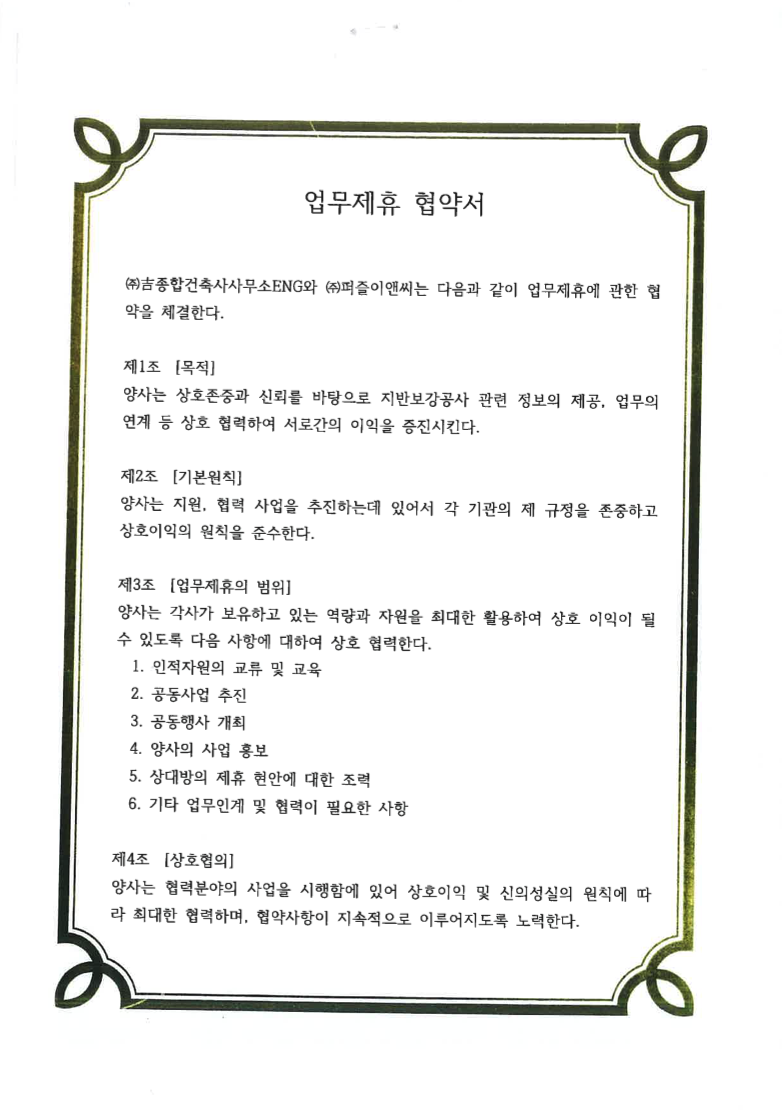 업무제휴 협약서
㈜吉종합건축사사무소ENG와 ㈜퍼즐이앤씨는 다음과 같이 업무제휴에 관한 협
약을 체결한다.
제1조 [목적]
양사는 상호존중과 신뢰를 바탕으로 지반보강공사 관련 정보의 제공, 업무의
연계 등 상호 협력하여 서로간의 이익을 증진시킨다.
제2조 [기본원칙]
양사는 지원, 협력 사업을 추진하는데 있어서 각 기관의 제 규정을 존중하고
상호이익의 원칙을 준수한다.
제3조 [업무제휴의 범위]
양사는 각사가 보유하고 있는 역량과 자원을 최대한 활용하여 상호 이익이 될
수 있도록 다음 사항에 대하여 상호 협력한다.
1. 인적자원의 교류 및 교육
2. 공동사업 추진
3. 공동행사 개최
4. 양사의 사업 홍보
5. 상대방의 제휴 현안에 대한 조력
6. 기타 업무인계 및 협력이 필요한 사항
제4조 [상호협의]
양사는 협력분야의 사업을 시행함에 있어 상호이익 및 신의성실의 원칙에 따
라 최대한 협력하며, 협약사항이 지속적으로 이루어지도록 노력한다.